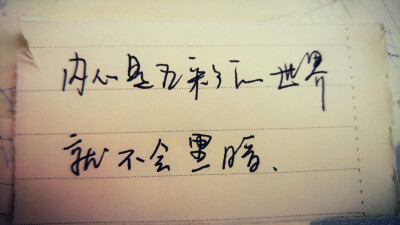 内心是五彩的世界
就不会黑暗、